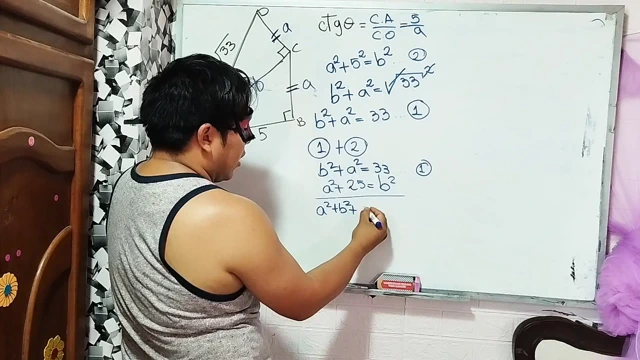 D
√33
a
C
θ
a
B
5
ctgθ = C.A/CO = 5/a
a²+5²=b² ②
b²+a²=√33²
b²+a²=33 ①
①+②
b²+a²=33 ①
a²+25=b²
a²+b²+